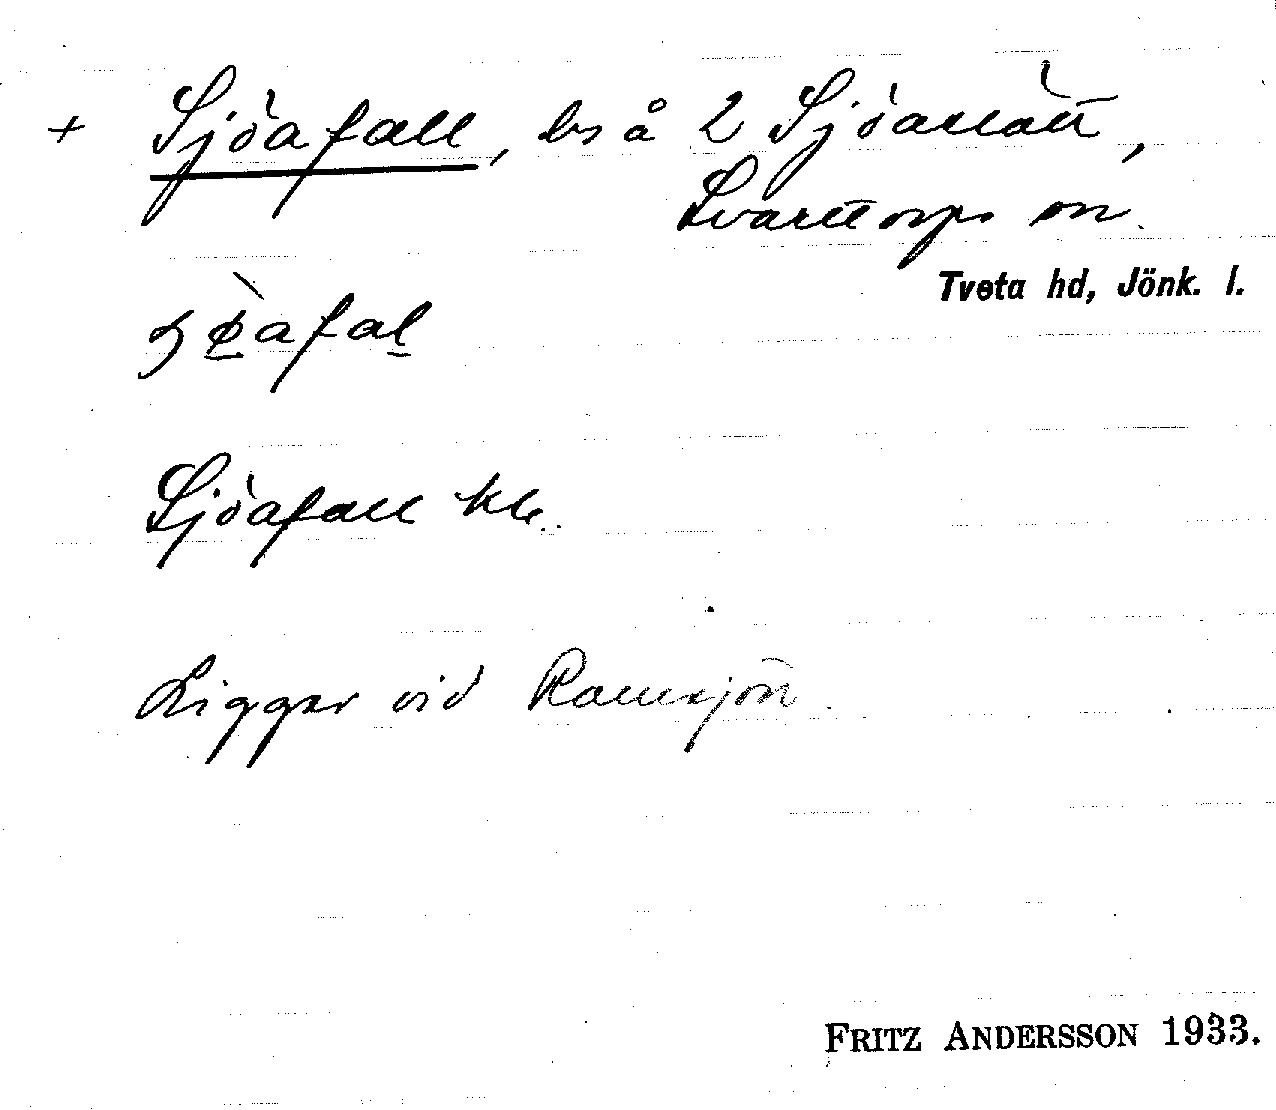 + Sjöafall, bs å 2 Sjöarått,
Svarttorps sn.
Tveta hd, Jönk. l.
Sjöafall kb.
Ligger vid Ramsjön.
FRITZ ANDERSSON 1933.